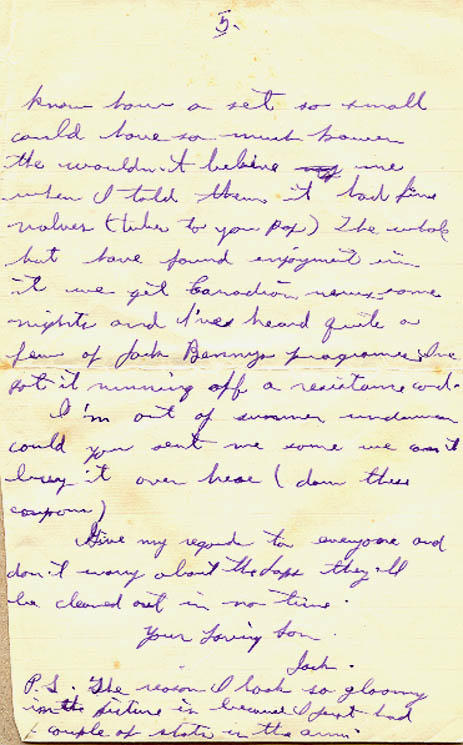 5.
know how a set so small
could have so much power
the wouldn't believe my me
when I told them it had five
valves (tubes to you Pop) The whole
hut have found enjoyment in
it we get Canadian news some
nights and I've heard quite a
few of Jack Bennys programmes. I've
got it running off a resistance cord.
I'm out of summer underwear
could you sent me some we can't
buy it over hear (dam these
coupons)
Give my regards to everyone and
don't worry about the Japs they'll
be cleaned out in no time.
Your Loving Son
Jack.
P.S. The reason I look so gloomy
in the picture is because I just had
a couple of shots in the arm.